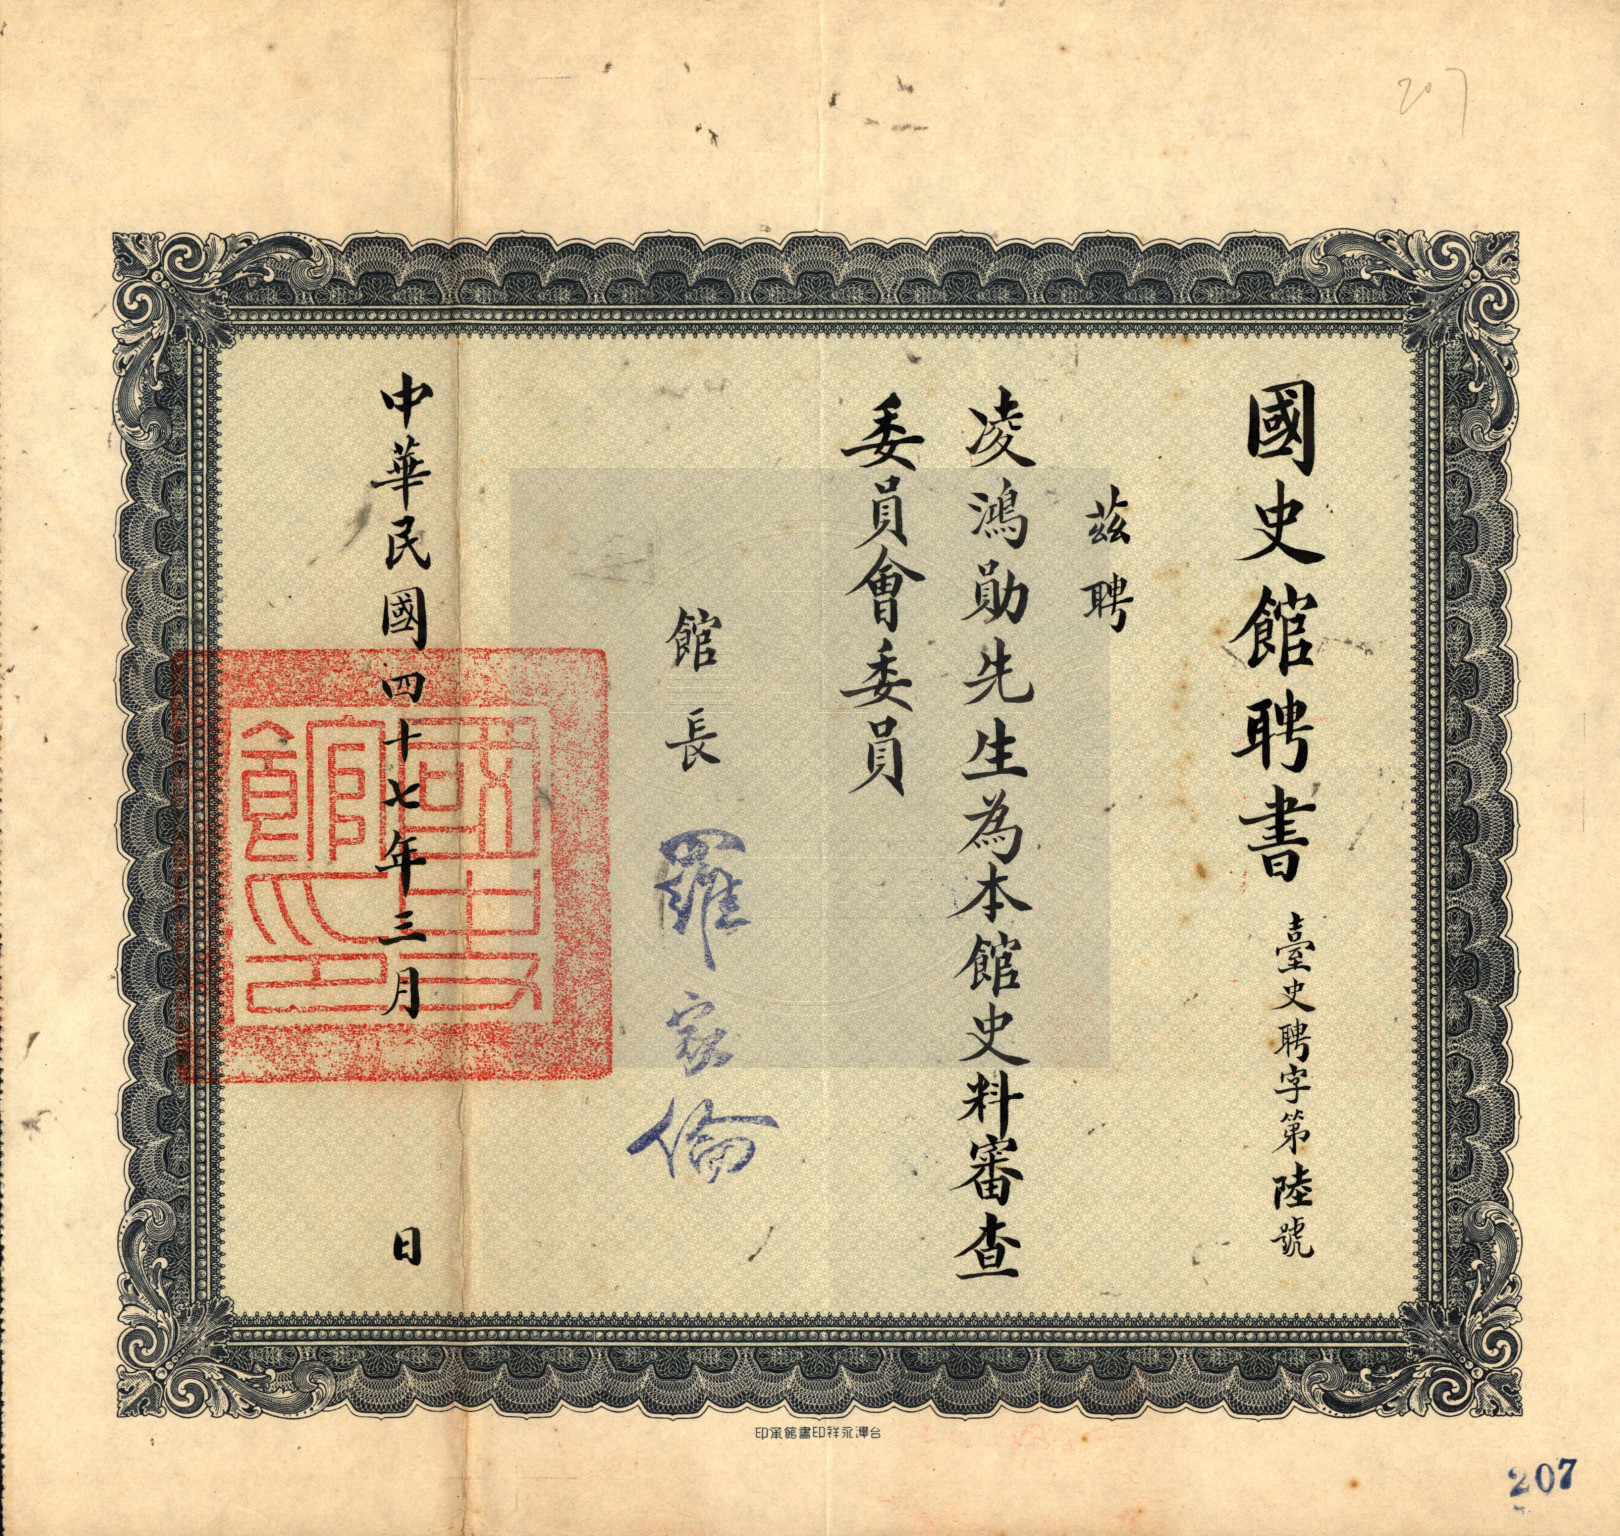 207
國史館聘書
臺史聘字第陸號
茲聘
凌鴻勛先生為本館史料審查
委員會委員
館長 羅家倫
中華民國四十七年三月 日
國史館印
印承館書印祥永灣台
207